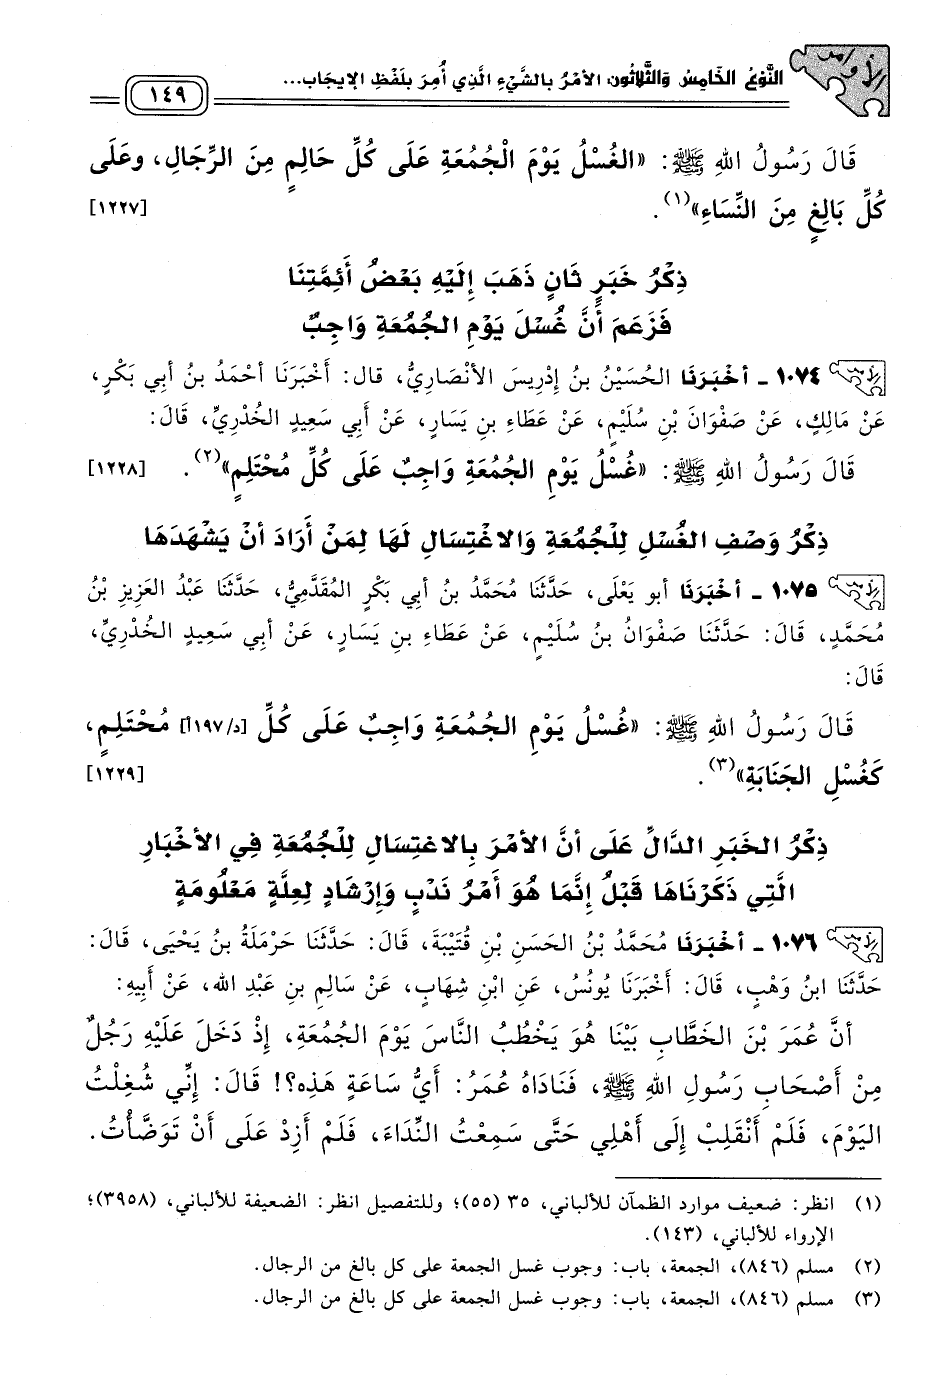 الأوامر
النَّوْعُ الخَامِسُ وَالثَّلَاثُونَ: الأَمْرُ بِالشَّيْءِ الَّذِي أُمِرَ بِلَفْظِ الإِيجَابِ...
١٤٩
قَالَ رَسُولُ اللهِ ﷺ: «الغُسْلُ يَوْمَ الْجُمُعَةِ عَلَى كُلِّ حَالِمٍ مِنَ الرِّجَالِ، وعَلَى
كُلِّ بَالِغٍ مِنَ النِّسَاءِ»(١). [١٢٢٧]
ذِكْرُ خَبَرٍ ثَانٍ ذَهَبَ إِلَيْهِ بَعْضُ أَئِمَّتِنَا
فَزَعَمَ أَنَّ غُسْلَ يَوْمِ الجُمُعَةِ وَاجِبٌ
١٠٧٤ - أخْبَرَنَا الحُسَيْنُ بنُ إِدْرِيسَ الأنْصَارِيُّ، قال: أَخْبَرَنَا أحْمَدُ بنُ أبِي بَكْرٍ،
عَنْ مَالِكٍ، عَنْ صَفْوَانَ بْنِ سُلَيْمٍ، عَنْ عَطَاءِ بنِ يَسَارٍ، عَنْ أَبِي سَعِيدٍ الخُدْرِيِّ، قَالَ:
قَالَ رَسُولُ اللهِ ﷺ: «غُسْلُ يَوْمِ الجُمُعَةِ وَاجِبٌ عَلَى كُلِّ مُحْتَلِمٍ»(٢). [١٢٢٨]
ذِكْرُ وَصْفِ الغُسْلِ لِلْجُمُعَةِ وَالاغْتِسَالِ لَهَا لِمَنْ أَرَادَ أنْ يَشْهَدَهَا
١٠٧٥ - أخْبَرَنَا أبو يَعْلَى، حَدَّثَنَا مُحَمَّدُ بنُ أبِي بَكْرٍ المُقَدَّمِيُّ، حَدَّثَنَا عَبْدُ العَزِيزِ بْنُ
مُحَمَّدٍ، قَالَ: حَدَّثَنَا صَفْوَانُ بنُ سُلَيْمٍ، عَنْ عَطَاءِ بنِ يَسَارٍ، عَنْ أَبِي سَعِيدٍ الخُدْرِيِّ،
قَالَ:
قَالَ رَسُولُ اللهِ ﷺ: «غُسْلُ يَوْمِ الجُمُعَةِ وَاجِبٌ عَلَى كُلِّ [د/١٩٧أ] مُحْتَلِمٍ،
كَغُسْلِ الجَنَابَةِ»(٣). [١٢٢٩]
ذِكْرُ الخَبَرِ الدَّالِّ عَلَى أنَّ الأمْرَ بِالاغْتِسَالِ لِلْجُمُعَةِ فِي الأخْبَارِ
الَّتِي ذَكَرْنَاهَا قَبْلُ إِنَّمَا هُوَ أَمْرُ نَدْبٍ وَإِرْشَادٍ لِعِلَّةٍ مَعْلُومَةٍ
١٠٧٦ - أخْبَرَنَا مُحَمَّدُ بْنُ الحَسَنِ بْنِ قُتَيْبَةَ، قَالَ: حَدَّثَنَا حَرْمَلَةُ بنُ يَحْيَى، قَالَ:
حَدَّثَنَا ابنُ وَهْبٍ، قَالَ: أَخْبَرَنَا يُونُسُ، عَنِ ابْنِ شِهَابٍ، عَنْ سَالِمِ بنِ عَبْدِ الله، عَنْ أَبِيهِ:
أنَّ عُمَرَ بْنَ الخَطَّابِ بَيْنَا هُوَ يَخْطُبُ النَّاسَ يَوْمَ الجُمُعَةِ، إِذْ دَخَلَ عَلَيْهِ رَجُلٌ
مِنْ أَصْحَابِ رَسُولِ اللهِ ﷺ، فَنَادَاهُ عُمَرُ: أَيُّ سَاعَةٍ هَذِهِ؟! قَالَ: إِنِّي شُغِلْتُ
اليَوْمَ، فَلَمْ أَنْقَلِبْ إِلَى أَهْلِي حَتَّى سَمِعْتُ النِّدَاءَ، فَلَمْ أَزِدْ عَلَى أَنْ تَوَضَّأْتُ.
(١) انظر: ضعيف موارد الظمآن للألباني، ٣٥ (٥٥)؛ وللتفصيل انظر: الضعيفة للألباني، (٣٩٥٨)؛
الإرواء للألباني، (١٤٣).
(٢) مسلم (٨٤٦)، الجمعة، باب: وجوب غسل الجمعة على كل بالغ من الرجال.
(٣) مسلم (٨٤٦)، الجمعة، باب: وجوب غسل الجمعة على كل بالغ من الرجال.